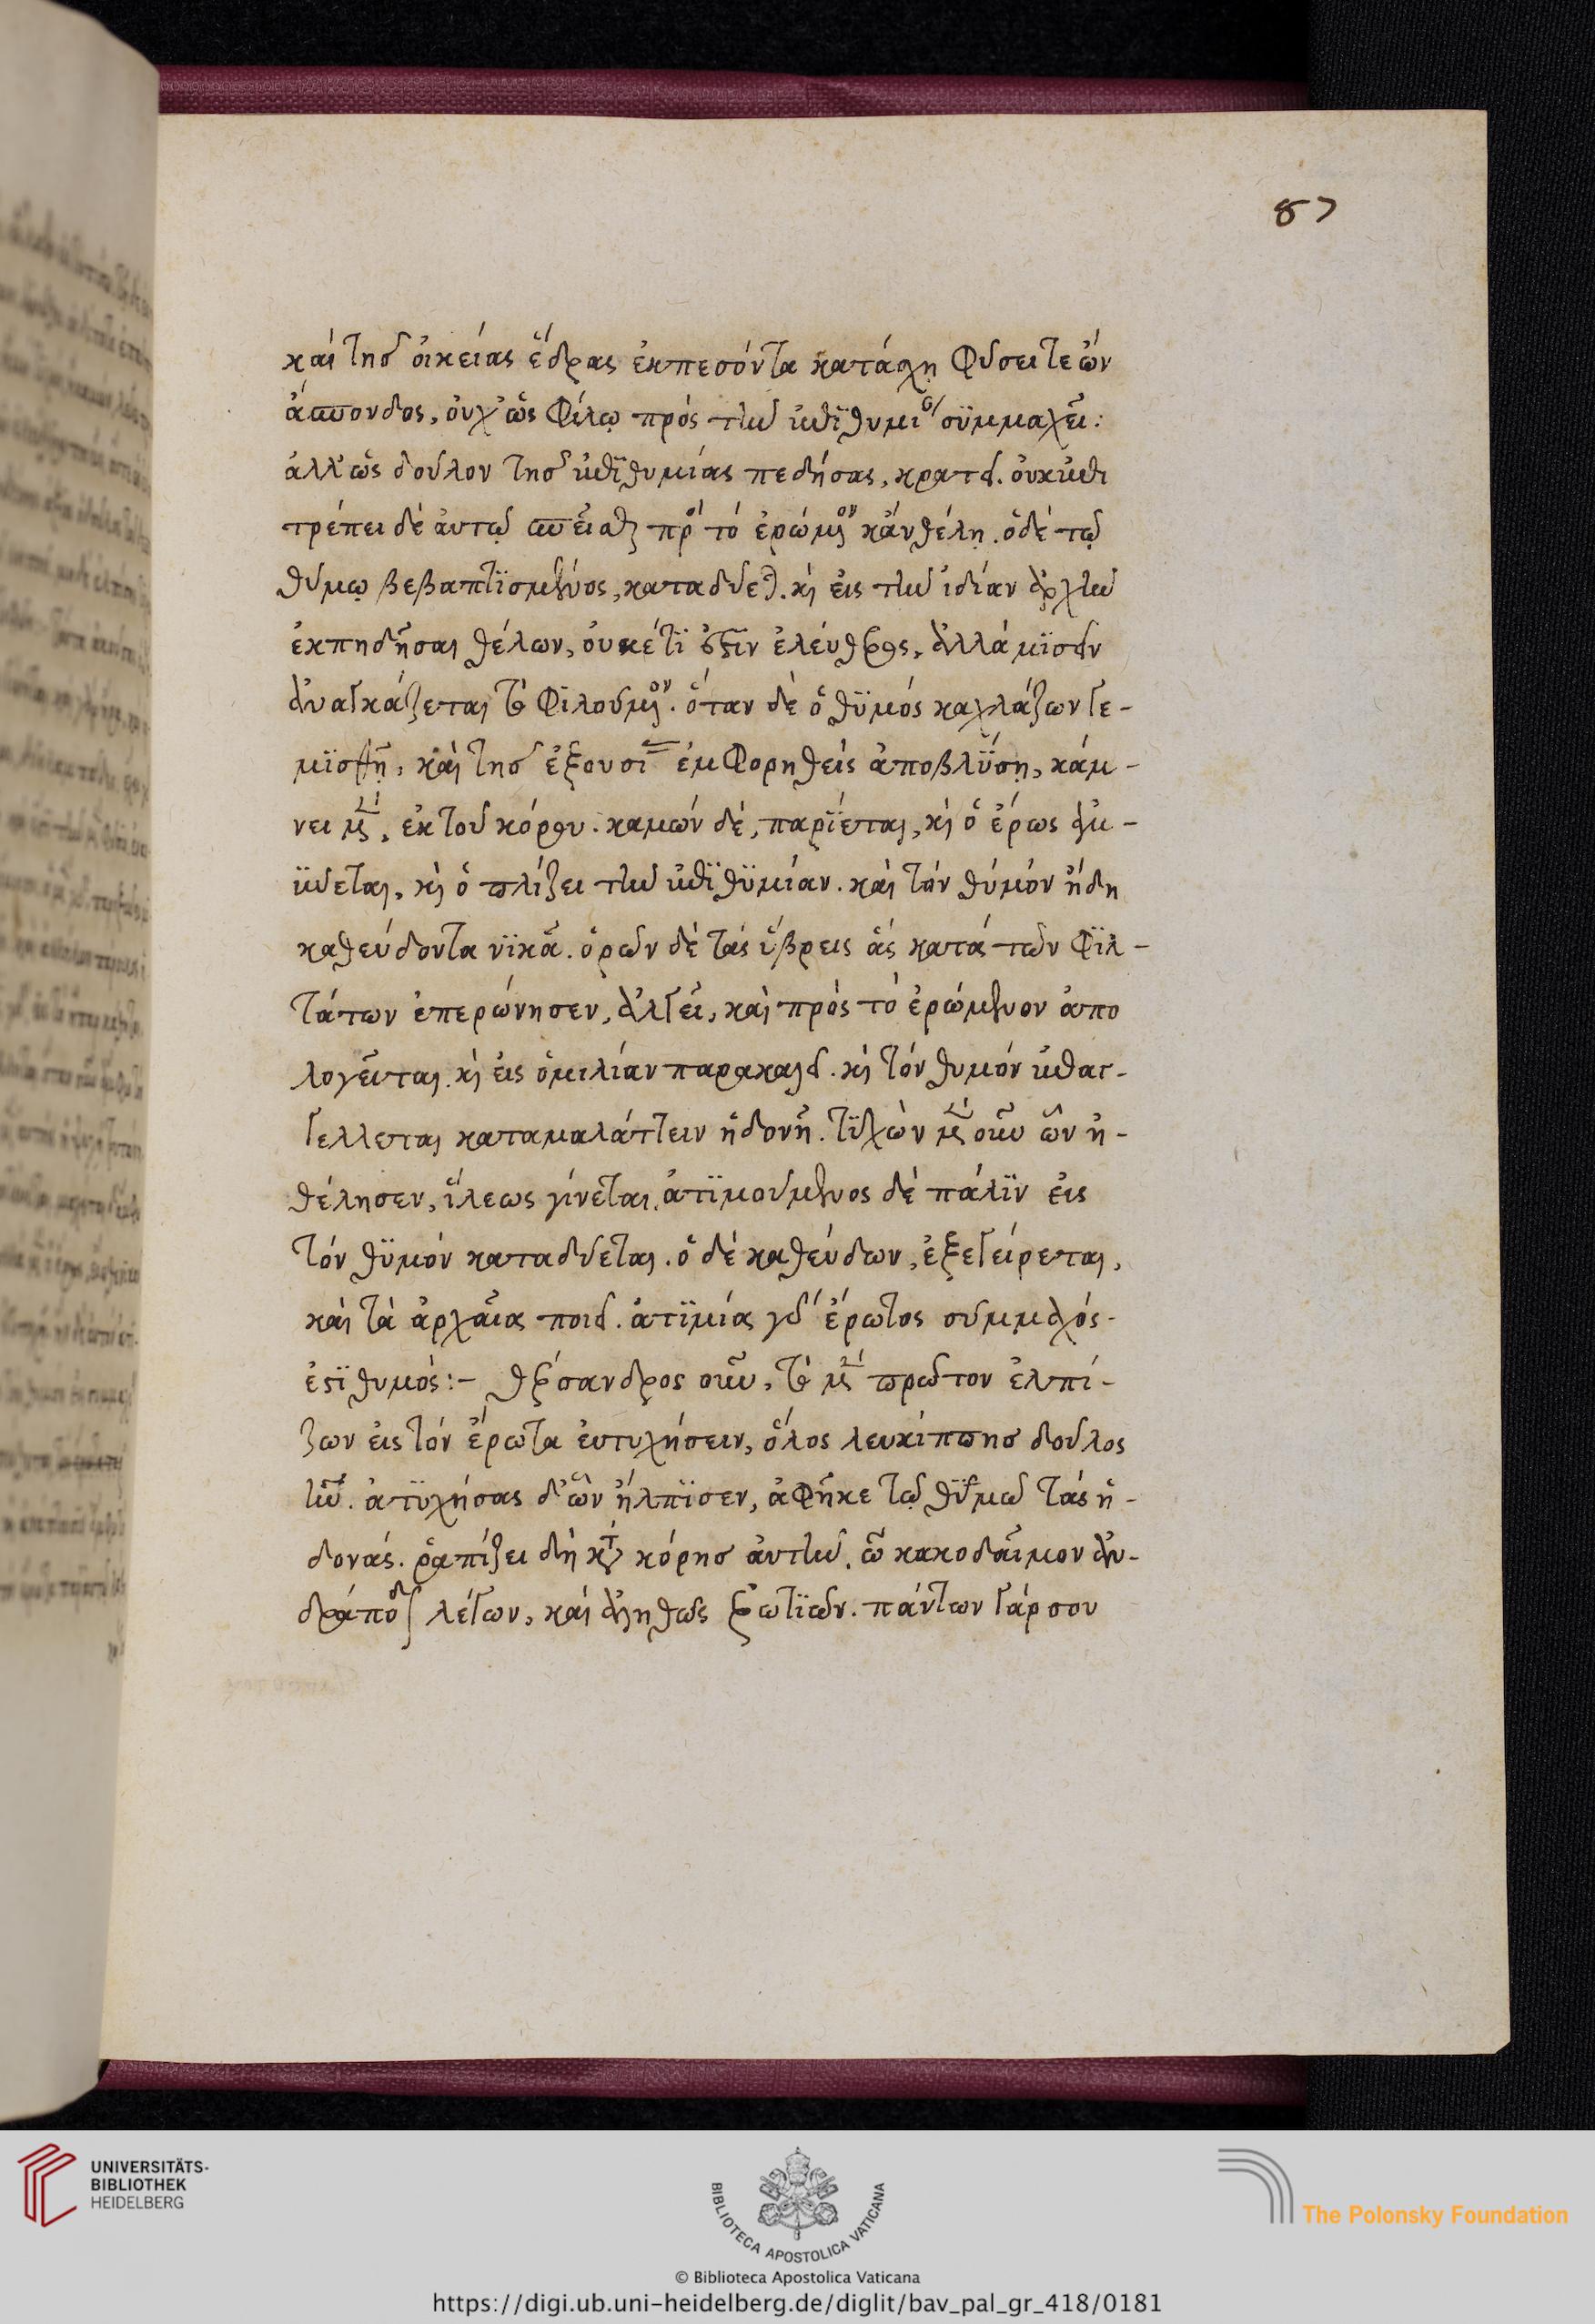 87
καὶ τῆς οἰκείας ἕδρας ἐκπεσόντα κατάσχῃ φύσει τε ὢν
ἄσπονδος, οὐχ' ὡς φίλῳ πρὸς τὴν ἐπϊθυμίαν σϋμμαχεῖ:
ἀλλ' ὡς δοῦλον τῆς ἐπϊθυμίας πεδήσας, κρατεῖ. οὐκ ἐπι
τρέπει δὲ ἀυτῷ σπείσασθαι πρὸς τὸ ἐρώμενον κἂν θέλῃ. ὁ δὲ τῷ
θυμῷ βεβαπτϊσμένος, καταδύεται. καὶ εἰς τὴν ἰδίαν ἀρχὴν
ἐκπηδῆσαι θέλων, οὐκέτϊ ἐστϊν ἐλεύθερος, ἀλλὰ μϊσεῖν
ἀναγκάζεται τὸ φϊλούμενον. ὅταν δὲ ὁ θϋμὸς καχλάζων γε-
μϊσθῇ, καὶ τῆς ἐξουσίας ἐμφορηθεὶς ἀποβλΰσῃ, κάμ-
νει μὲν, ἐκ τοῦ κόρου. καμὼν δὲ, παρΐεται, καὶ ὁ ἔρως ἀμ-
ΰνεται, καὶ ὁπλίζει τὴν ἐπϊθϋμίαν. καὶ τὸν θυμὸν ἤδη
καθεύδοντα νϊκᾶ. ὁρῶν δὲ τὰς ὕβρεις ἃς κατὰ τῶν φϊλ-
τάτων ἐπερώνησεν, ἀλγεῖ, καὶ πρὸς τὸ ἐρώμενον ἀπο
λογεῖται. καὶ εἰς ὁμιλίαν παρακαλεῖ. καὶ τὸν θυμὸν ἐπαγ-
γέλλεται καταμαλάττειν ἡδονῇ. τϋχὼν μὲν οὖν ὧν ἠ-
θέλησεν, ἵλεως γίνεται. ἀτϊμούμενος δὲ πάλϊν εἰς
τὸν θϋμὸν καταδύεται. ὁ δὲ καθεύδων, ἐξεγείρεται,
καὶ τὰ ἀρχαῖα ποιεῖ. ἀτϊμίας γὰρ ἔρωτος σύμμαχός-
ἐστϊ θυμὸς:- θέρσανδρος οὖν, τὸ μὲν πρῶτον ἐλπί-
ζων εἰς τὸν ἔρωτα ἐυτυχήσειν, ὅλος λευκίππης δοῦλος
ἦν. ἀτϋχήσας δ' ὧν ἤλπϊσεν, ἀφῆκε τῷ θϋμῷ τὰς ἡ-
δονάς. ῥαπίζει δὴ κατὰ κόρης ἀυτὴν. ὦ κακοδαῖμον ἀν-
δράποδον λέγων, καὶ ἀληθῶς ἐρωτϊῶν. πάντων γάρ σου
UNIVERSITÄTS-
BIBLIOTHEK
HEIDELBERG
BIBLIOTECA APOSTOLICA VATICANA
The Polonsky Foundation
© Biblioteca Apostolica Vaticana
https://digi.ub.uni-heidelberg.de/diglit/bav_pal_gr_418/0181